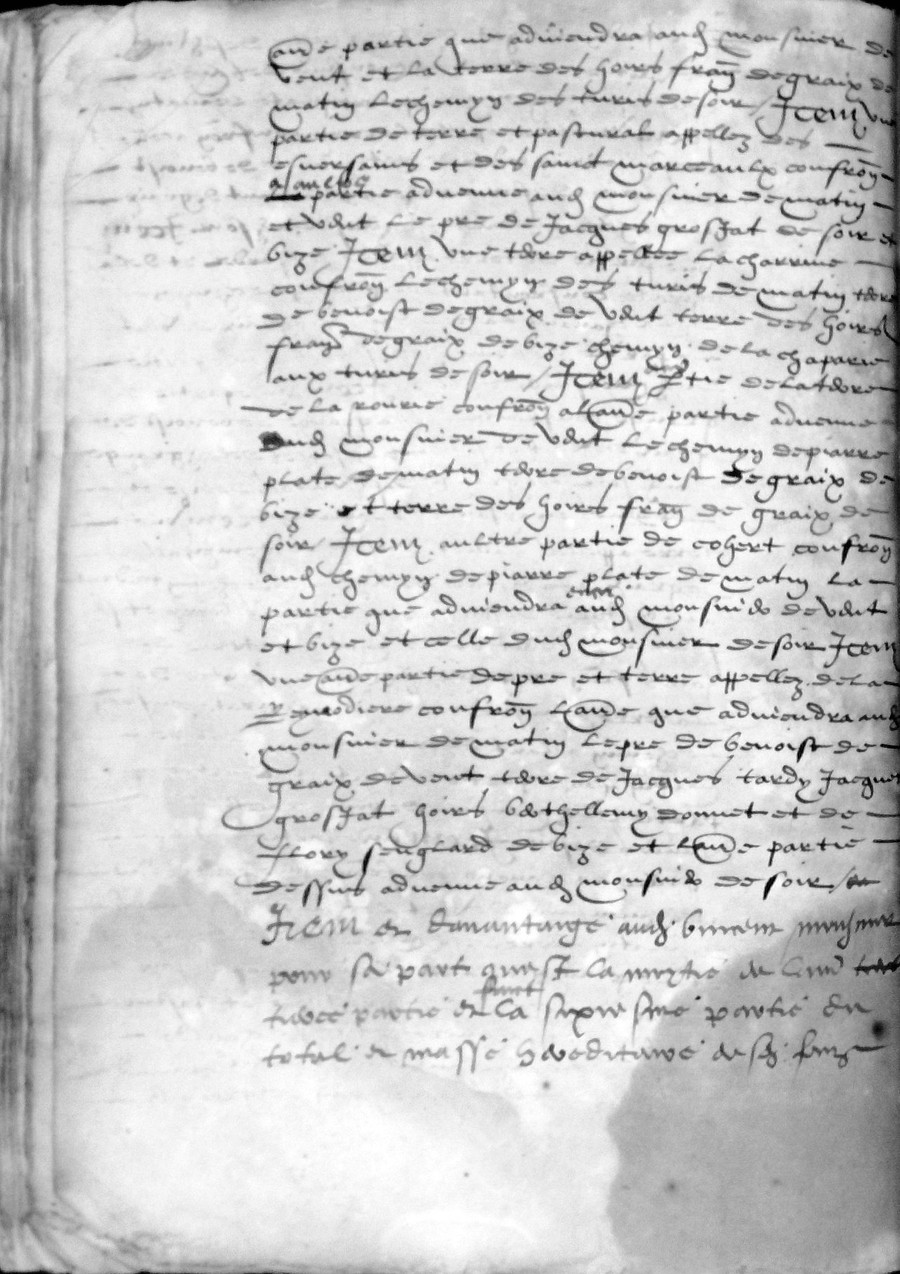 aue partie que adviendra aud monsinier de
vent et la terre des hoirs fran degraix de
matin le chemyn des turis de soir / Item une
partie de terre et pastural appellez des
et des sainct marceaulx confron
partie advenue aud monsinier de matin
et vent le pre de Jacques grosjat de soir et
bize Item une terre appellee la charriere
confron le chemyn des turis de matin terre
de benoist degraix de vent terre des hoirs
fran degraix de bize chemyn de la chaparie
aux turis de soir / Item ptie de la terre
de la rourie confron a laue partie advenue
aud monsinier de vent le chemyn de piarre
plate de matin terre de benoist de graix de
bize et terre des hoirs fran de graix de
soir / Item aultre partie de cohert confron
aud chemyn de piarre plate de matin la
partie que adviendra aud monsinier de vent
et bize et celle dud monsinier de soir Item
une aue partie de pre et terre appellez de la
confron laue que adviendra aud
monsinier de matin le pre de benoist de
graix de vent terre de Jacques tardy Jacques
grosjat hoirs berthellemy donnet et de
flory senglard de bize et laue partie
dessus advenue aud monsinier de soir /
Item et davantaige aud vincent monsinier
pour sa part quest la moytie de lune
tierce partie et la sixiesme partie du
total et masse hereditaire de